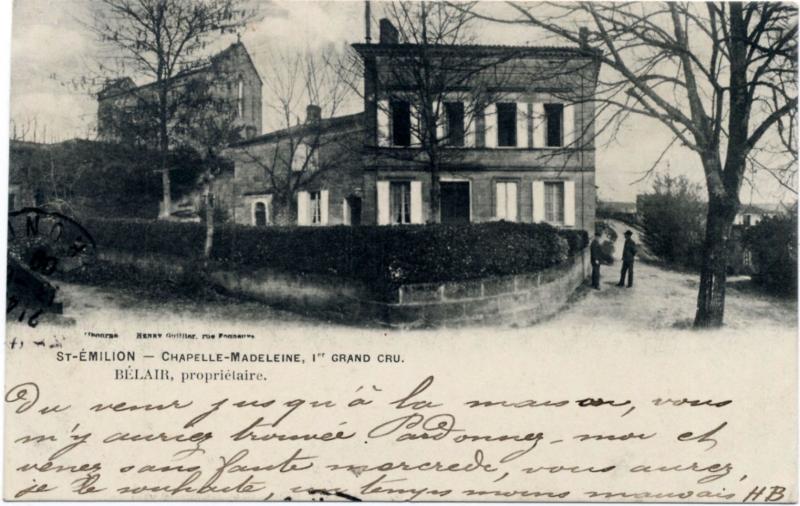 Libourne HENRY Guillier, rue Fonneuve
ST-ÉMILION — CHAPELLE-MADELEINE, 1er GRAND CRU.
BÉLAIR, propriétaire.
Du venir jusqu'à la maison, vous
m'y auriez trouvée. Pardonnez-moi et
venez sans faute mercredi, vous aurez,
je le souhaite, un temps moins mauvais HB